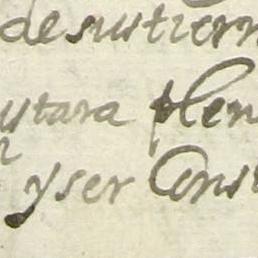 de sus tierr
utara plen
y ser Cons